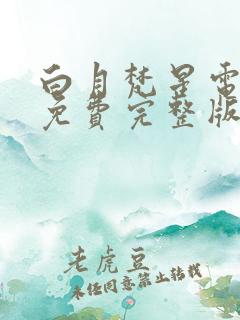 白月梵星電
免費完整版
老虎豆
未经同意禁止转载